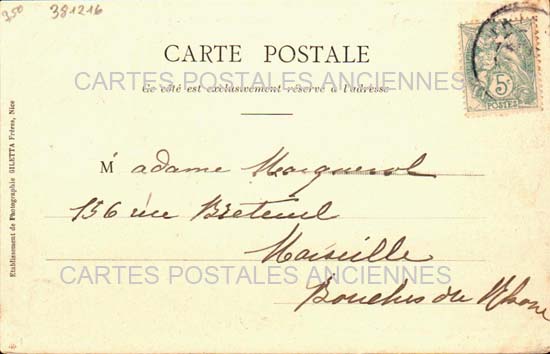 750 381216
CARTE POSTALE
CARTES POSTALES ANCIENNES
Ce côté est exclusivement réservé à l'adresse
5c
POSTES
Madame
156 rue Breteuil
Marseille
CARTES POSTALES ANCIENNES
Bouches du Rhone
Etablissement de Photographie GILETTA Frères, Nice